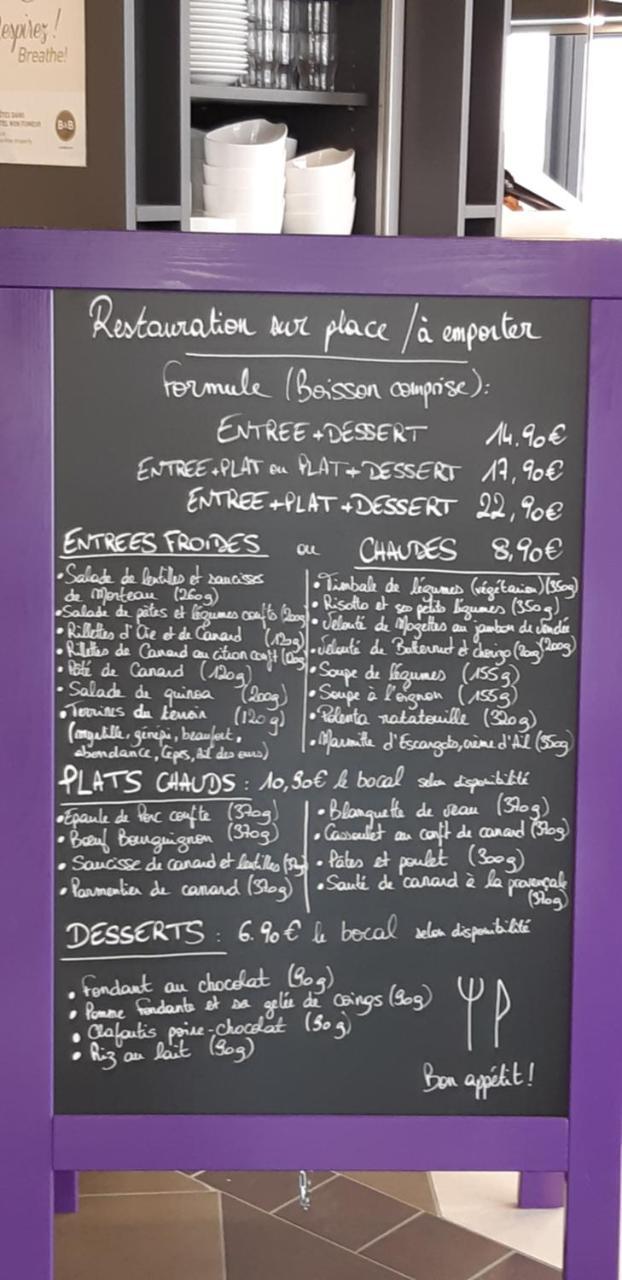 Respirez !
Breathe!
B&B
Restauration sur place / à emporter
Formule (Boisson comprise) :
ENTREE + DESSERT 14,90€
ENTREE + PLAT ou PLAT + DESSERT 17,90€
ENTREE + PLAT + DESSERT 22,90€
ENTREES FROIDES ou CHAUDES 8,90€
• Salade de lentilles et saucisses
de Morteau (260g)
• Salade de pâtes et légumes confits (200g)
• Rillettes d'Oie et de Canard (120g)
• Rillettes de Canard au citron confit (120g)
• Pâté de Canard (120g)
• Salade de quinoa (200g)
• Terrines du terroir (120g)
(myrtille, génépi, beaufort,
abondance, Cèpes, Ail des ours)
• Timbale de légumes (végétarien) (350g)
• Risotto et ses petits légumes (350g)
• Velouté de Mogettes au jambon de vendée
(200g)
• Velouté de Butternut et chorizo (200g)
• Soupe de légumes (155g)
• Soupe à l'oignon (155g)
• Polenta ratatouille (320g)
• Marmite d'Escargots, crème d'Ail (350g)
PLATS CHAUDS : 10,90€ le bocal selon disponibilité
• Epaule de Porc confite (370g)
• Bœuf Bourguignon (370g)
• Saucisse de canard et lentilles
• Parmentier de canard (370g)
• Blanquette de veau (370g)
• Cassoulet au confit de canard (370g)
• Pâtes et poulet (300g)
• Sauté de canard à la provençale
(370g)
DESSERTS : 6.90€ le bocal selon disponibilité
• Fondant au chocolat (90g)
• Pomme fondante et sa gelée de coings (90g)
• Clafoutis poire-chocolat (90g)
• Riz au lait (90g)
Bon appétit !